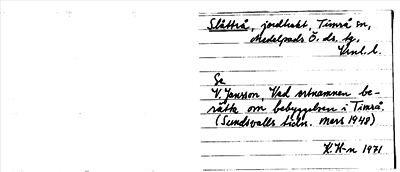 Slåttrå, jordtrakt, Timrå sn,
Medelpads Ö. ds. tg,
Vnl. l.
Se
V. Jansson, Vad ortnamnen be-
rätta om bebyggelsen i Timrå.
(Sundsvalls tidn. mars 1948)
K. H-n 1971